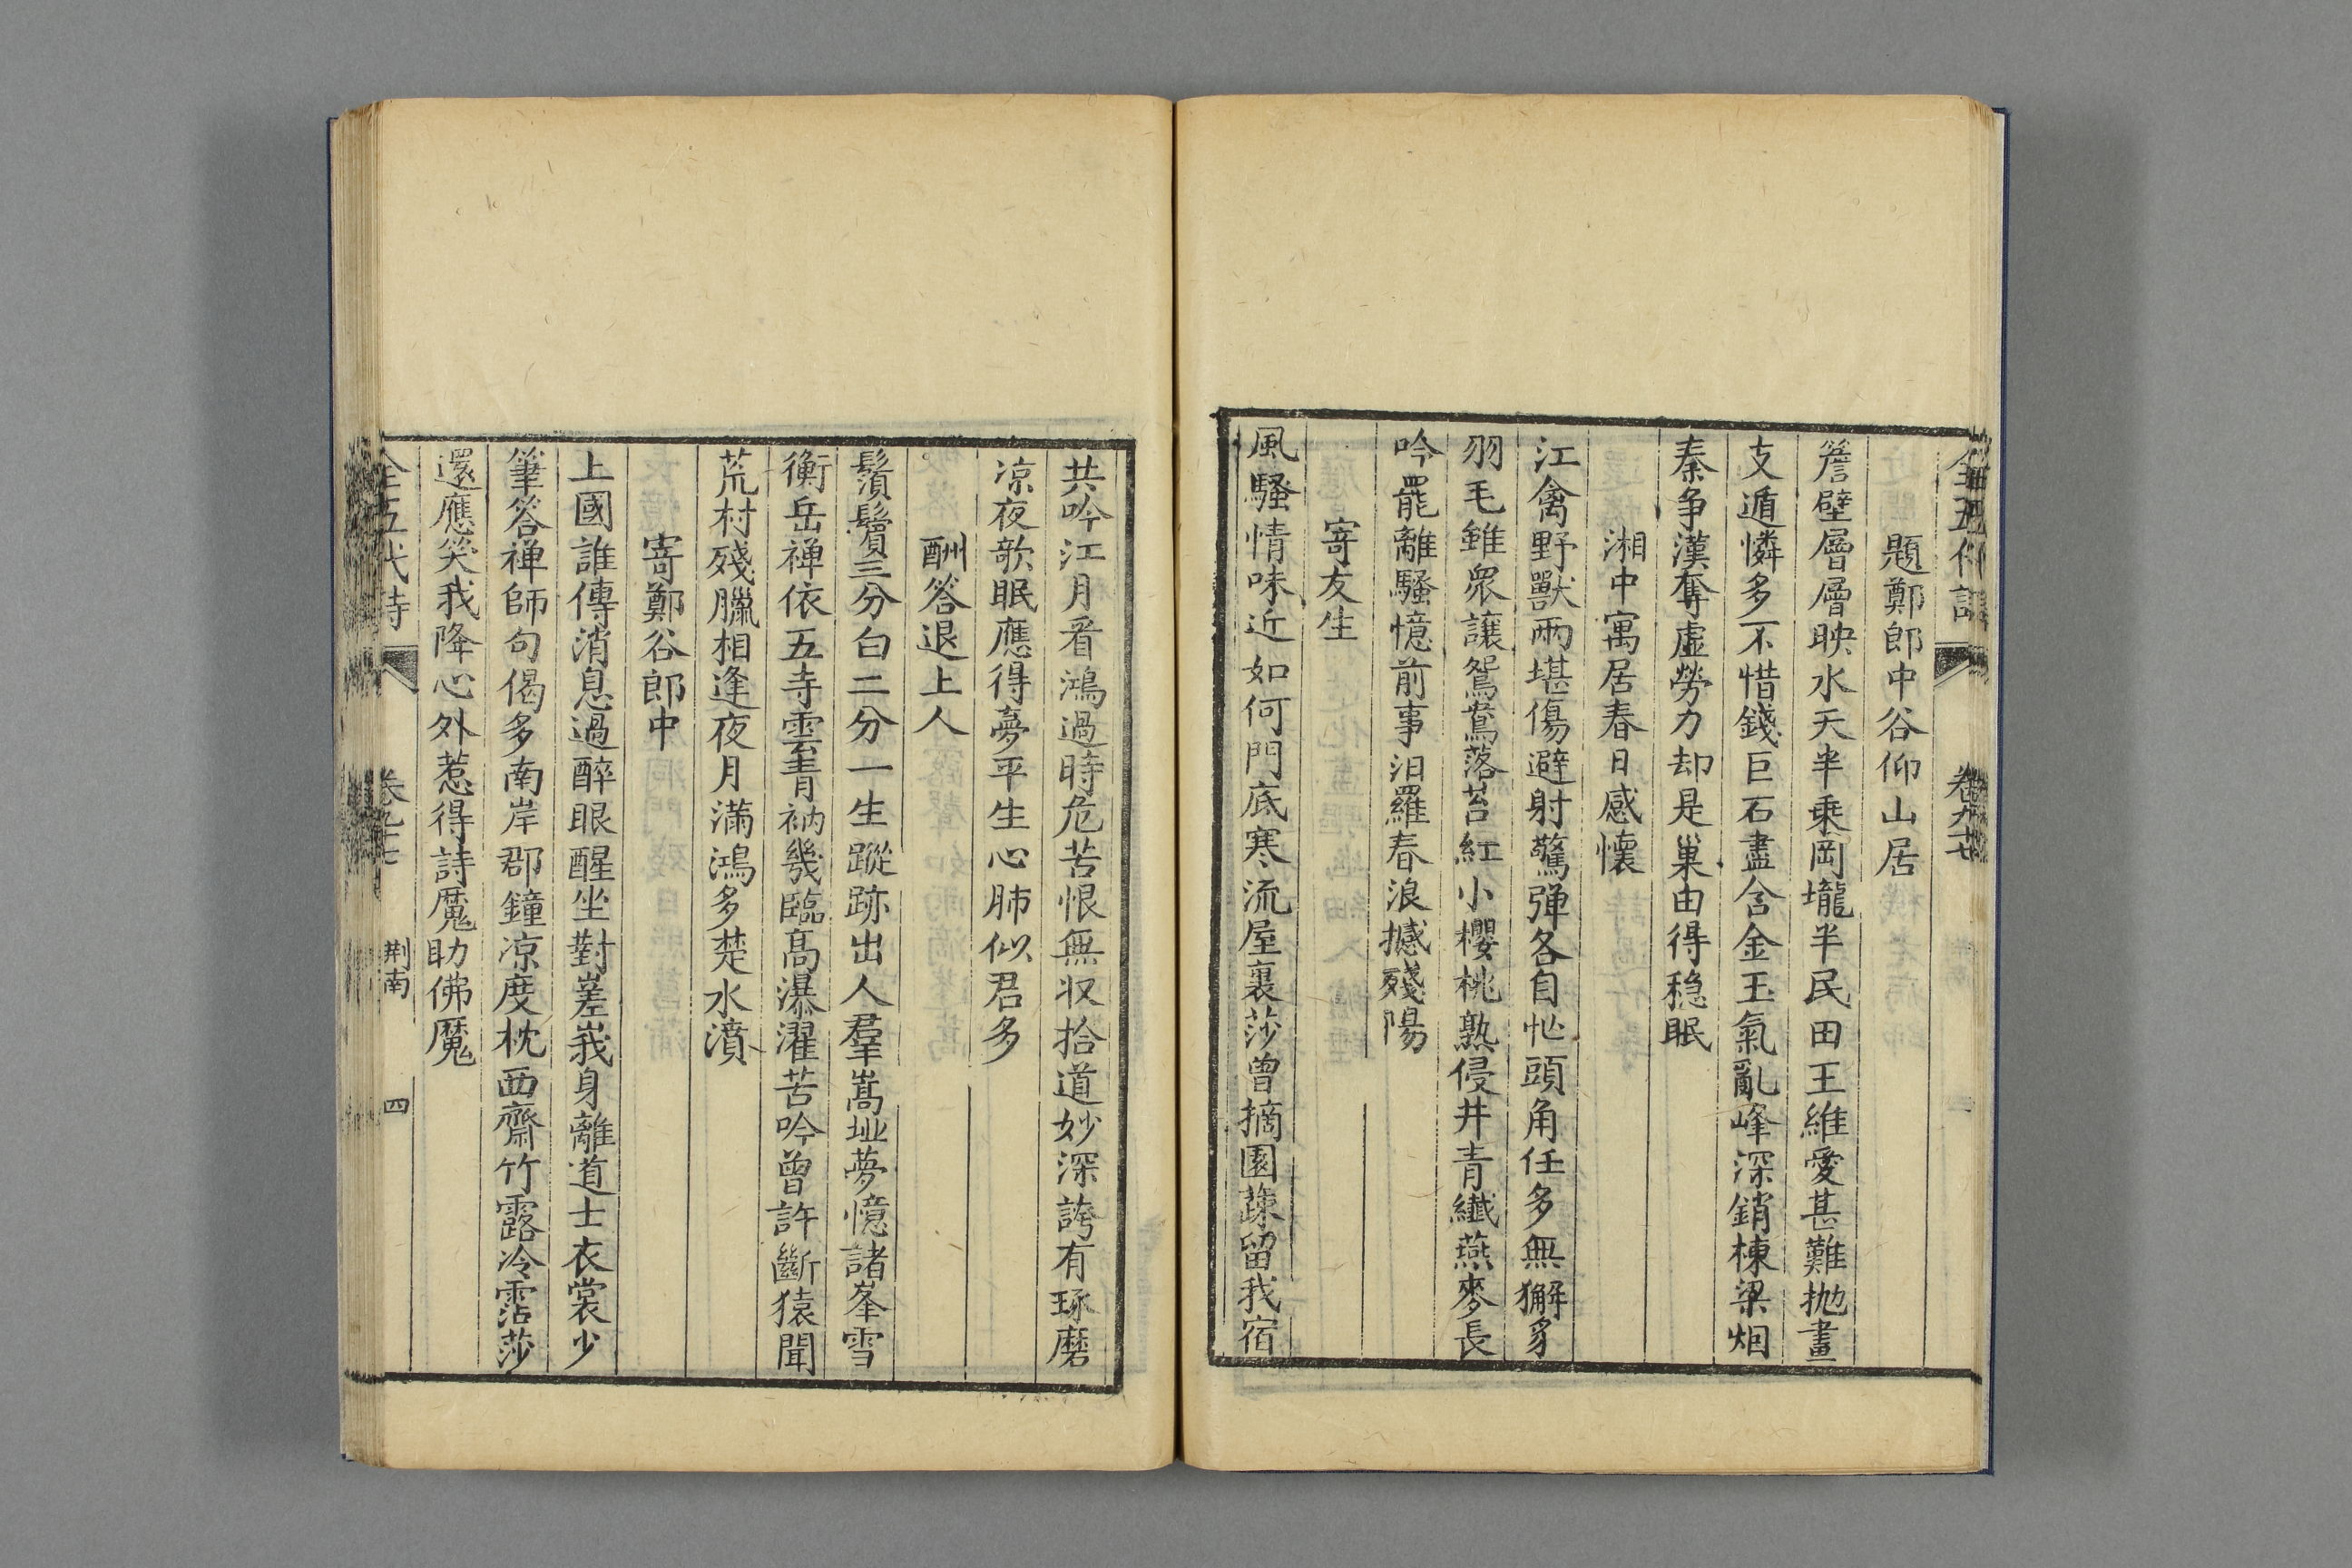 題鄭郎中谷仰山居
簷壁層層映水天半乘岡壠半民田王維愛甚難抛畫
支遁憐多不惜錢巨石盡含金玉氣亂峰深銷棟梁烟
秦争漢奪虚勞力却是巢由得穏眠
湘中寓居春日感懷
江禽野獸兩堪傷避射驚彈各自忙頭角任多無獬豸
羽毛雖衆讓鴛鴦落苔紅小櫻桃熟侵井青纖燕麥長
吟罷離騷憶前事汨羅春浪撼殘陽
寄友生
風騷情味近如何門底寒流屋裏莎曾摘園蔬留我宿
共吟江月看鴻過時危苦恨無収拾道妙深誇有琢磨
凉夜欹眠應得夢平生心肺似君多
酬答退上人
鬚鬢三分白二分一生蹤跡出人羣嵩丘夢憶諸峯雪
衡岳禅依五寺雲青衲幾臨髙瀑濯苦吟曾許斷猿聞
荒村殘臘相逢夜月滿鴻多楚水濆
寄鄭谷郎中
上國誰傳消息過醉眼醒坐對嵳峩身離道士衣裳少
筆答禅師句偈多南岸郡鐘凉度枕西齋竹露冷霑莎
還應笑我降心外惹得詩魔助佛魔
全五代詩
荆南
四